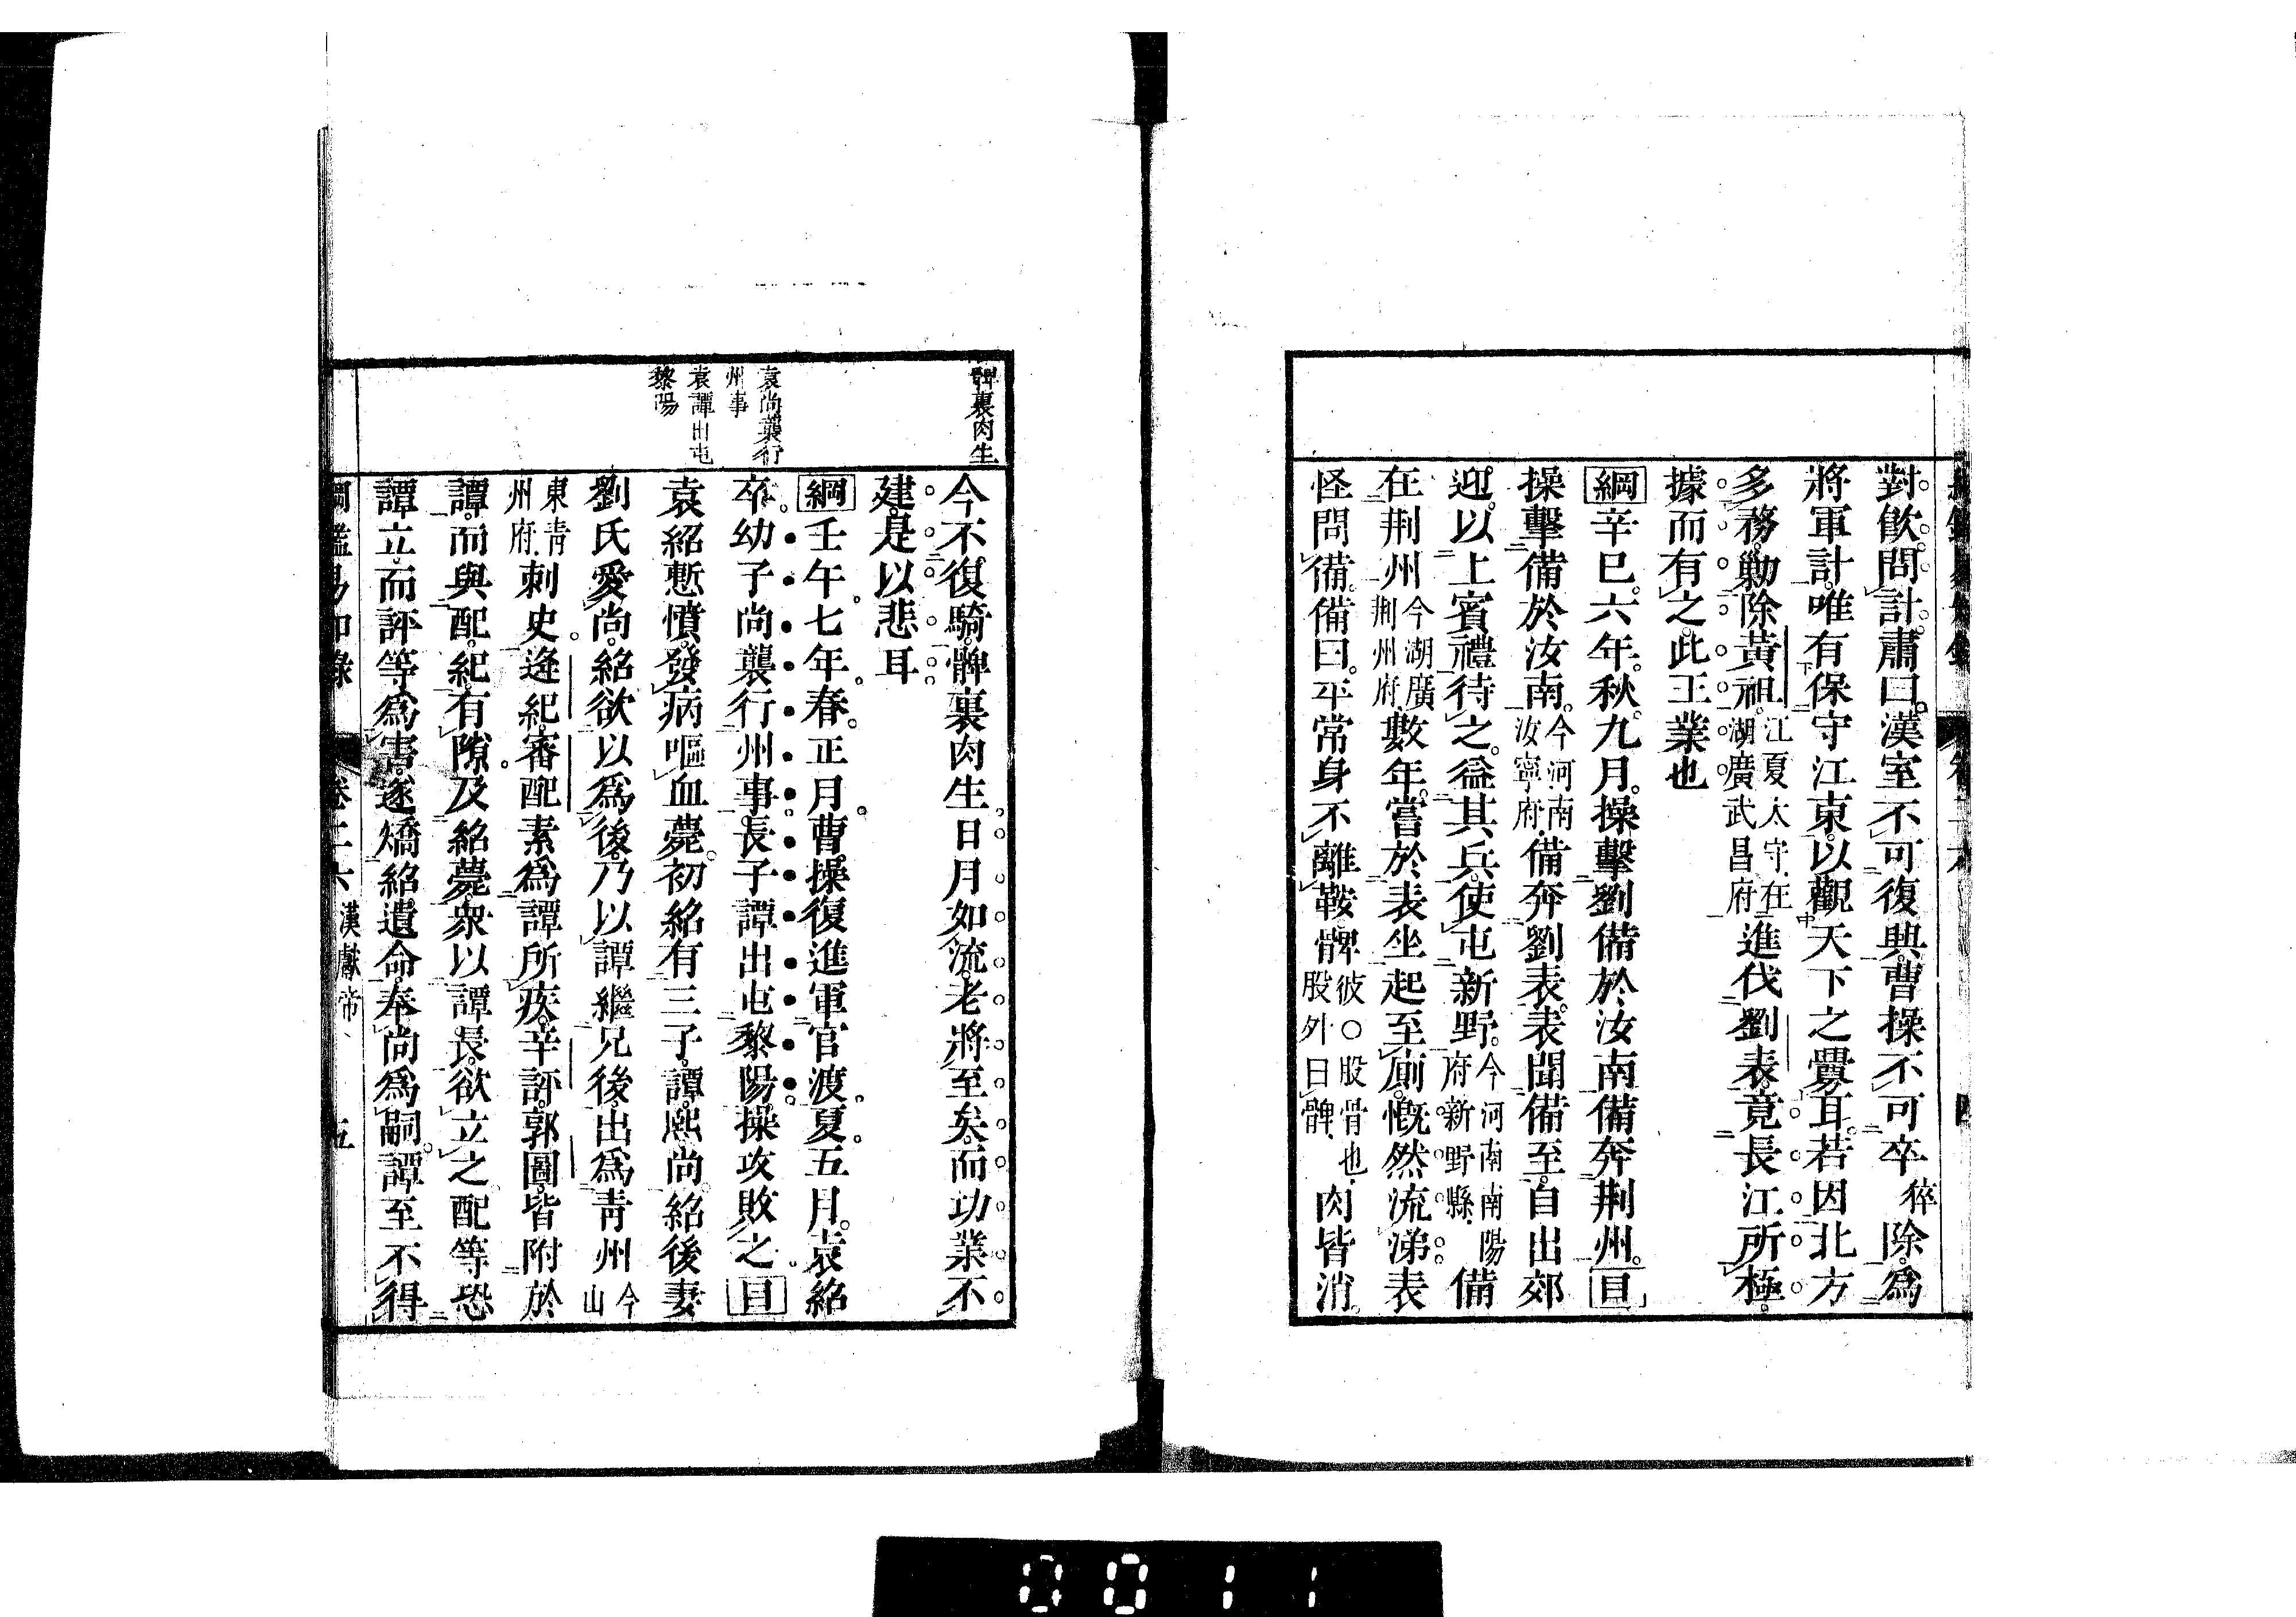 對飮問計肅曰漢室不可復興曹操不可卒猝除爲
將軍計唯有保守江東以觀天下之釁耳若因北方
多務勦除黃祖江夏太守在湖廣武昌府進伐劉表竟長江所極
據而有之此王業也
綱辛巳六年秋九月操擊劉備於汝南備奔荆州目
操擊備於汝南今河南汝寧府備奔劉表表聞備至自出郊
迎以上賓禮待之益其兵使屯新野今河南南陽府新野縣備
在荆州今湖廣荆州府數年嘗於表坐起至廁慨然流涕表
怪問備備曰平常身不離鞍髀彼○股骨也股外曰髀肉皆消
髀裏肉生
今不復騎髀裏肉生日月如流老將至矣而功業不
建是以悲耳
綱壬午七年春正月曹操復進軍官渡夏五月袁紹
袁尚襲行
州事
卒幼子尚襲行州事長子譚出屯黎陽操攻敗之目
袁譚出屯
黎陽
袁紹慙憤發病嘔血薨初紹有三子譚熙尚紹後妻
劉氏愛尚紹欲以爲後乃以譚繼兄後出爲靑州今山
東靑州府刺史逄紀審配素爲譚所疾辛評郭圖皆附於
譚而與配紀有隙及紹薨衆以譚長欲立之配等恐
譚立而評等爲害遂矯紹遺命奉尚爲嗣譚至不得
綱鑑易知錄 卷二六 漢獻帝 五
0011